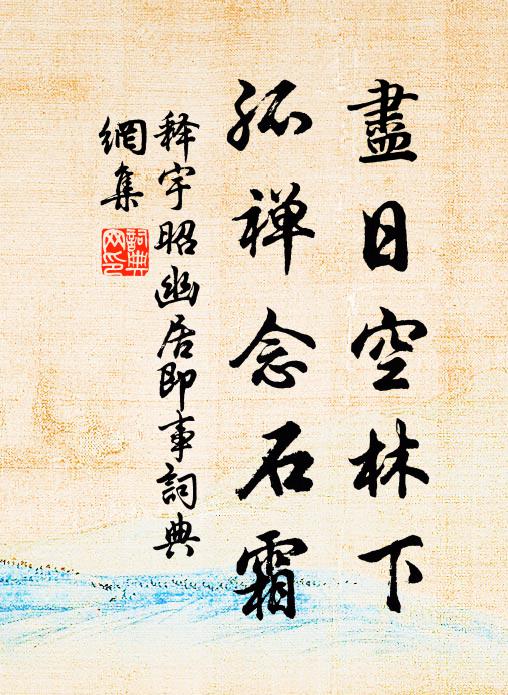 盡日空林下
孤禅念石霜
释宇昭幽居即事詞典
網集
詞典
网印